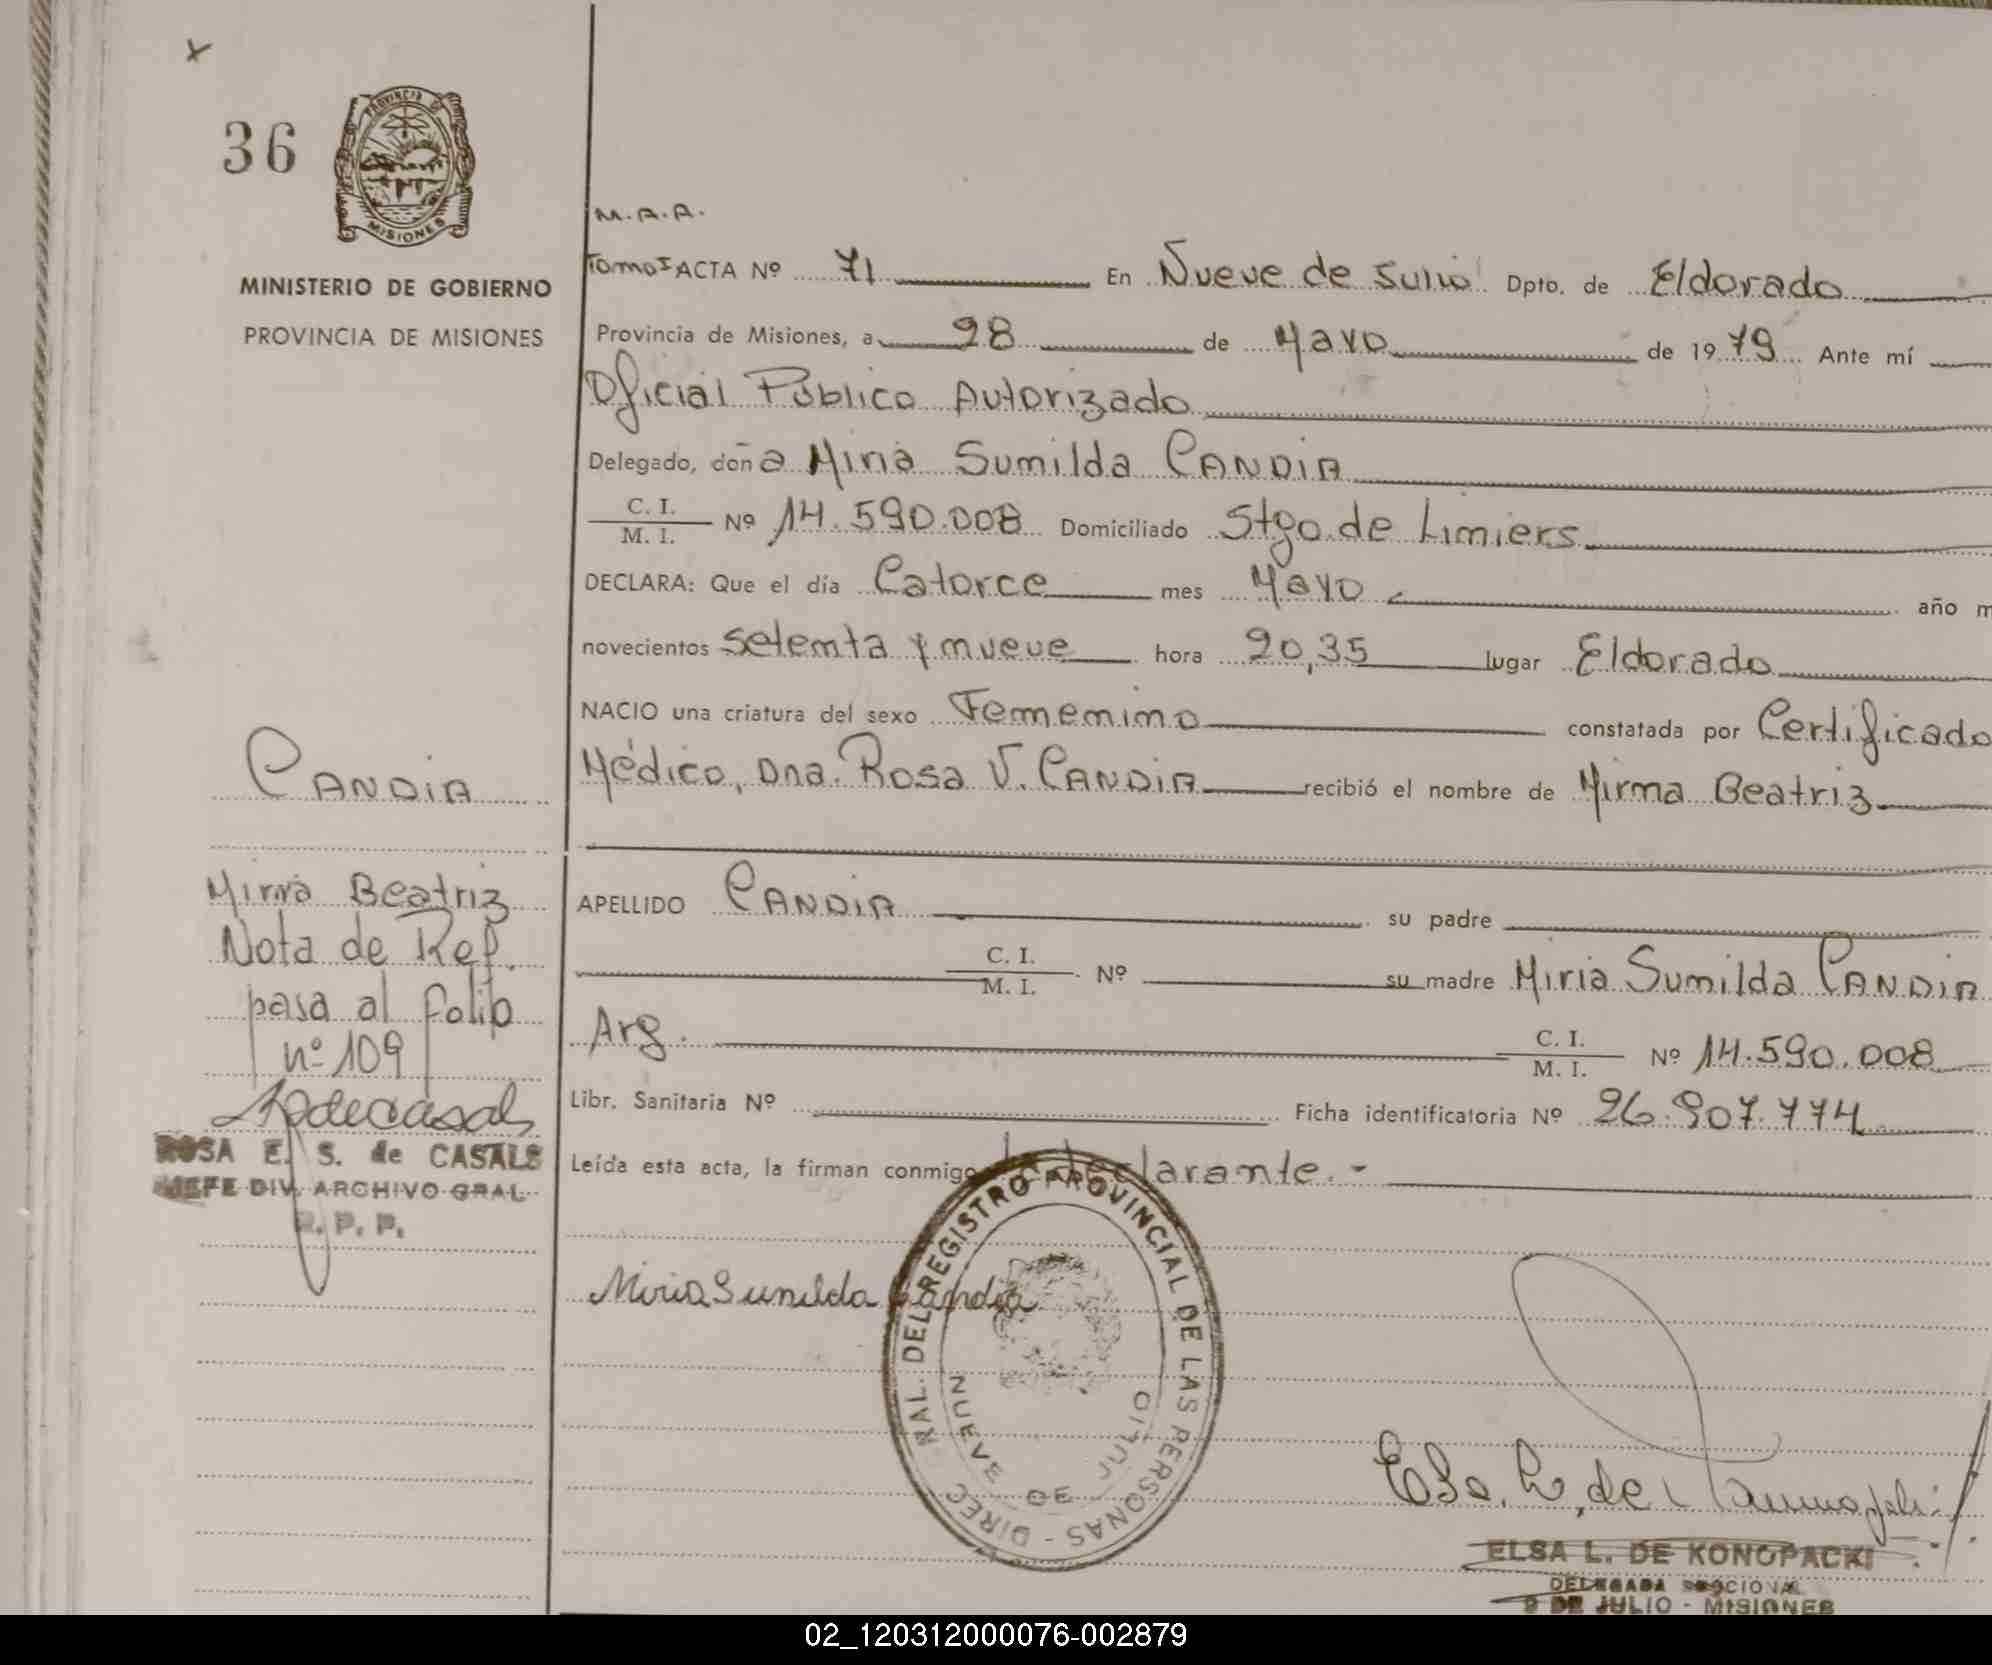 x
36
PROVINCIA DE
MISIONES
MINISTERIO DE GOBIERNO
PROVINCIA DE MISIONES
M.A.A.
Tomo I ACTA Nº 71 En Nueve de Julio Dpto. de Eldorado
Provincia de Misiones, a 28 de Mayo de 1979 Ante mí
Oficial Público Autorizado
Delegado, doña Miria Sumilda CANDIA
C. I.
M. I. Nº 14.590.008 Domiciliado Stgo. de Limiers
DECLARA: Que el día Catorce mes Mayo año m
novecientos setenta y nueve hora 20,35 lugar Eldorado
NACIO una criatura del sexo Femenino constatada por Certificado
Médico, Dna. Rosa V. CANDIA recibió el nombre de Mirna Beatriz
APELLIDO CANDIA su padre
C. I.
M. I. Nº su madre Miria Sumilda CANDIA
Arg. C. I.
M. I. Nº 14.590.008
Libr. Sanitaria Nº Ficha identificatoria Nº 26.907.774
Leída esta acta, la firman conmigo la declarante.-
CANDIA
Mirna Beatriz
Nota de Ref.
pasa al folio
nº 109
ROSA E. S. de CASALS
JEFE DIV. ARCHIVO GRAL.
R. P. P.
Miria Sumilda Candia
DIREC RAL. DEL REGISTRO PROVINCIAL DE LAS PERSONAS -
NUEVE DE JULIO
Elsa L. de
ELSA L. DE KONOPACKI
DELEGADA SECCIONAL
9 DE JULIO - MISIONES
02_120312000076-002879